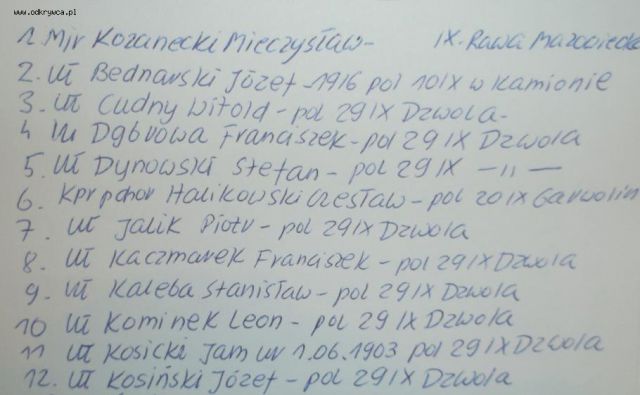 www.odkrywca.pl
1. Mjr Kozanecki Mieczysław- IX. Rawa Mazowiecka
2. Uł Bednarski Józef -1916 pol 10 IX w Kamionie
3. Uł Cudny Witold - pol 29 IX Dzwola-
4 Uł Dąbrowa Franciszek - pol 29 IX Dzwola
5. Uł Dynowski Stefan - pol 29 IX -11-
6. Kpr pchor Halikowski Czesław - pol 20 IX Garwolin
7. Uł Jalik Piotr - pol 29 IX Dzwola
8. Uł Kaczmarek Franciszek - pol 29 IX Dzwola
9. Uł Kaleba Stanisław - pol 29 IX Dzwola
10 Uł Kominek Leon - pol 29 IX Dzwola
11 Uł Kosicki Jam ur 1.06.1903 pol 29 IX Dzwola
12. Uł Kosiński Józef - pol 29 IX Dzwola